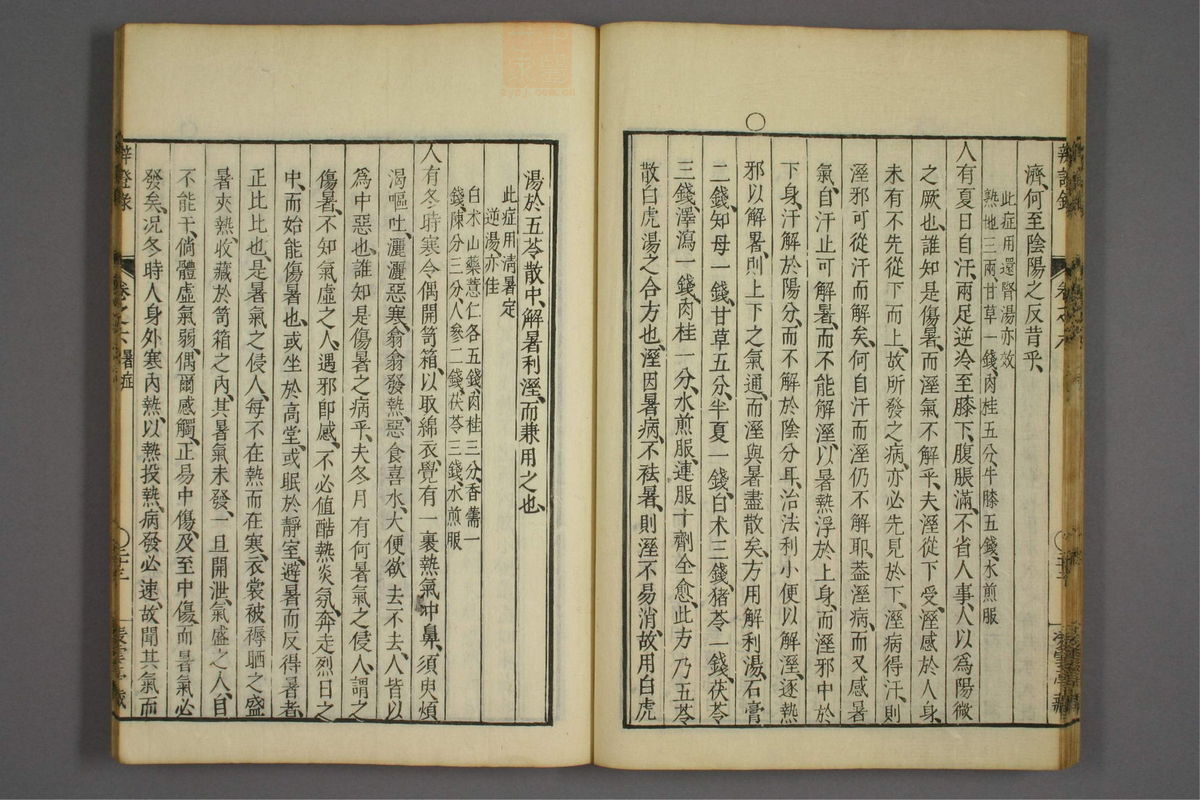 濟何至陰陽之反昔乎
此症用還腎湯亦效
熟地三兩甘草一錢肉桂五分牛膝五錢水煎服
人有夏日自汗兩足逆冷至膝下腹脹滿不省人事人以為陽微
之厥也誰知是傷暑而溼氣不解乎夫溼從下受溼感於人身
未有不先從下而上故所發之病亦必先見於下溼病得汗則
溼邪可從汗而解矣何自汗而溼仍不解耶葢溼病而又感暑
氣自汗止可解暑而不能解溼以暑熱浮於上身而溼邪中於
下身汗解於陽分而不解於陰分耳治法利小便以解溼逐熱
邪以解暑則上下之氣通而溼與暑盡散矣方用解利湯石膏
二錢知母一錢甘草五分半夏一錢白术三錢猪苓一錢茯苓
三錢澤瀉一錢肉桂一分水煎服連服十劑全愈此方乃五苓
散白虎湯之合方也溼因暑病不祛暑則溼不易消故用白虎
湯於五苓散中解暑利溼而兼用之也
此症用清暑定
逆湯亦佳
白术山藥薏仁各五錢肉桂三分香薷一
錢陳分三分人參二錢茯苓三錢水煎服
人有冬時寒令偶開笥箱以取綿衣覺有一裹熱氣冲鼻須臾煩
渴嘔吐灑灑惡寒翕翕發熱惡食喜水大便欲去不去人皆以
為中惡也誰知是傷暑之病乎夫冬月有何暑氣之侵人謂之
傷暑不知氣虛之人遇邪卽感不必值酷熱炎氛奔走烈日之
中而始能傷暑也或坐於高堂或眠於靜室避暑而反得暑者
正比比也是暑氣之侵人每不在熱而在寒衣裳被褥晒之盛
暑夾熱收藏於笥箱之內其暑氣未發一旦開泄氣盛之人自
不能干倘體虛氣弱偶爾感觸正易中傷及至中傷而暑氣必
發矣況冬時人身外寒內熱以熱投熱病發必速故聞其氣而
辨證錄
卷之六
暑症